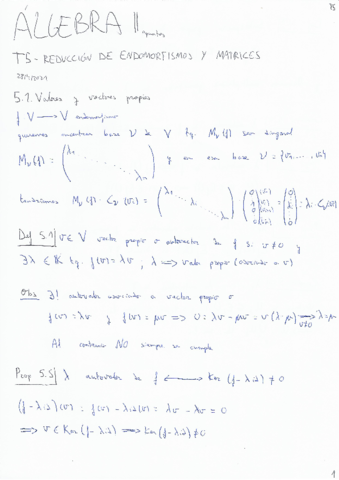 ÁLGEBRA II apuntes
T5- REDUCCIÓN DE ENDOMORFISMOS Y MATRICES
5.1. Valores y vectores propios
f V → V endomorfismo
queremos encontrar base V de V tq. M_V(f) sea diagonal
M_V(f) = (λ₁ ... λₙ) y en esa base V = {v₁, ..., vₙ}
tendríamos M_V(f) · C_V(vᵢ) = (λ₁ ... λᵢ ... λₙ) = λᵢ · C_V(vᵢ)
Def 5.1 v ∈ V vector propio o autovector de f si v ≠ 0 y
∃ λ ∈ K tq. f(v) = λv , λ ⟹ valor propio (asociado a v)
Obs ∃! autovalor asociado a vector propio v
f(v) = λv y f(v) = μv ⟹ 0 = λv - μv = v(λ-μ) ⟹ v≠0 λ = μ
Al contrario NO siempre se cumple
Prop 5.5 λ autovalor de f ⟷ Ker (f-λid) ≠ 0
(f-λid)(v) = f(v) - λid(v) = λv - λv = 0
⟹ v ∈ Ker (f-λid) ⟹ Ker (f-λid) ≠ 0
1